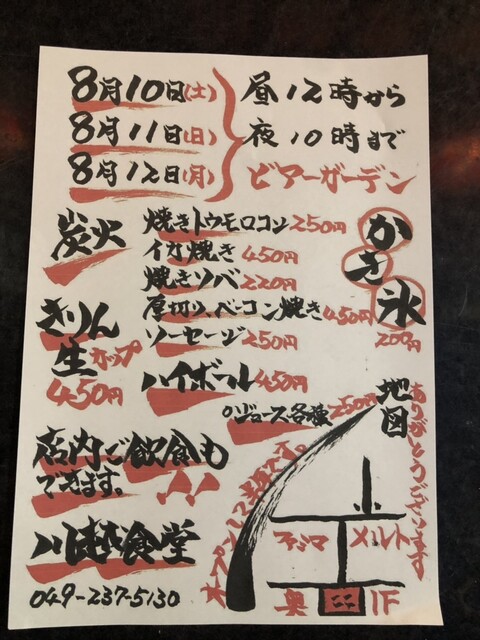 8月10日(土)
8月11日(日)
8月12日(月)
昼12時から
夜10時まで
ビアーガーデン
炭火
焼きトウモロコシ 250円
イカ焼き 450円
焼きソバ 220円
厚切り、ベーコン焼き 450円
ソーセージ 250円
かき氷
200円
きりん
生カップ
450円
ハイボール 450円
ジュース各種 250円
店内ご飲食も
できます。
川越食堂
049-237-5130
地図
ありがとうございます
メルト
奥 ココ 1F